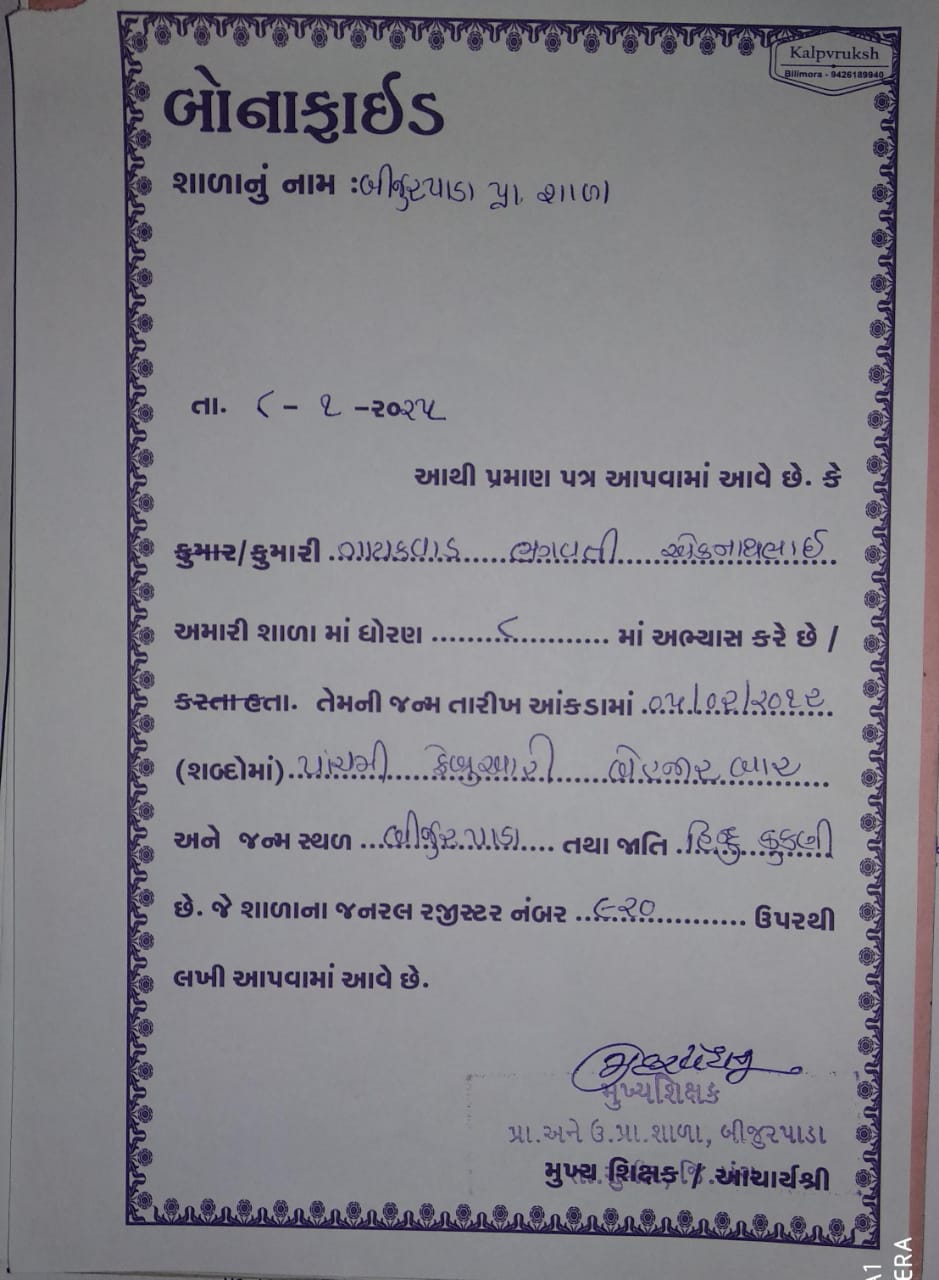 Kalpvruksh
Bilimora - 9426189940
બોનાફાઇડ
શાળાનું નામ :બીજુરપાડા પ્રા. શાળા
તા. ૮ - ૧ -૨૦૨૫
આથી પ્રમાણ પત્ર આપવામાં આવે છે. કે
કુમાર/કુમારી .ગાયકવાડ.....ભગવતી.....એકનાથભાઈ
અમારી શાળા માં ધોરણ ........૮........... માં અભ્યાસ કરે છે /
કરતા હતા. તેમની જન્મ તારીખ આંકડામાં .૦૫/૦૨/૨૦૧૨
(શબ્દોમાં)..પાંચમી....ફેબ્રુઆરી.....બેહજાર બાર
અને જન્મ સ્થળ ...બીજુરપાડા.... તથા જાતિ .હિન્દુ કુકણી
છે. જે શાળાના જનરલ રજીસ્ટર નંબર ...૯૨૦............ ઉપરથી
લખી આપવામાં આવે છે.
મુખ્યશિક્ષક
પ્રા.અને ઉ.પ્રા.શાળા, બીજુરપાડા
મુખ્ય શિક્ષક / આચાર્યશ્રી